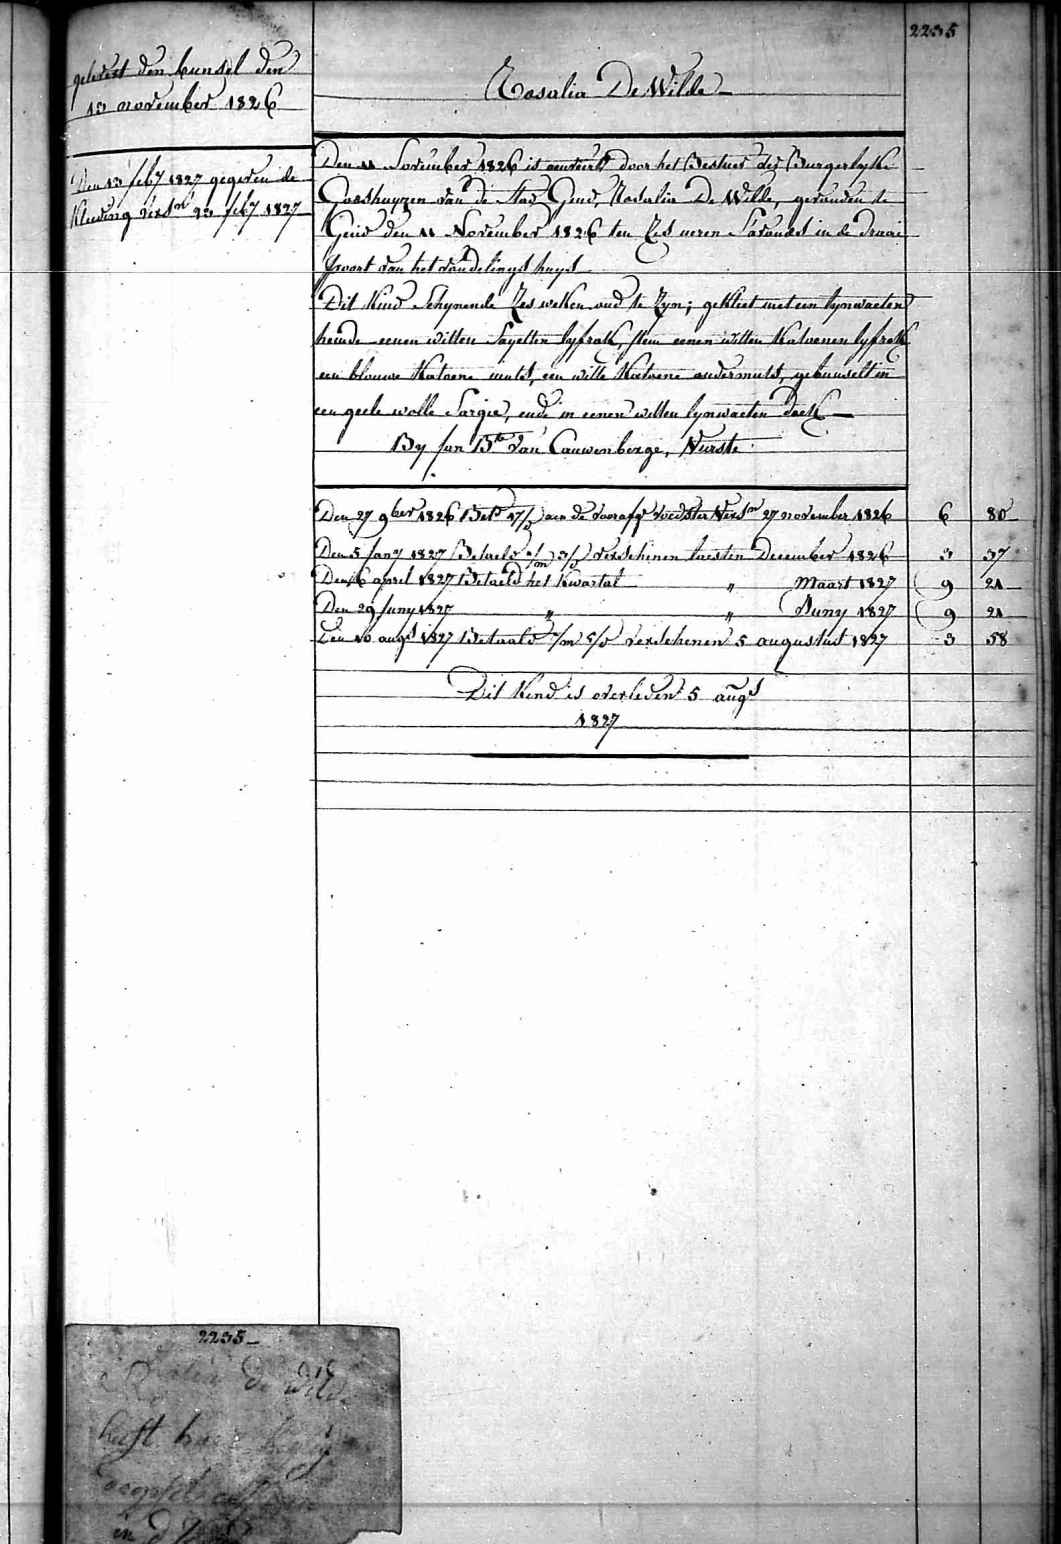 2235
gelevert den bunsel den
13 november 1826
Den 13 feby 1827 gegeven de
Kleeding vers.n 23 feby 1827
Rosalia De Wilde
Den 11 November 1826 is aenveird door het Bestuer der Burgerlyke
Godshuyzen van de Stad Gend, Rosalia De Wilde, gevonden te
Gend den 11 November 1826 ten Zes ueren S'avonds in de Draai
poort van het vondelingshuys
Dit Kind Schynende Zes weken oud te Zyn; gekleet met een lynwaeten
hemde eenen witten Sayetten lyfrok, item eenen witten Katoenen lyfrok
een blouwe Katoene muts, een witte Katoene ondermuts, gebunselt in
een geele wolle Sargie, ende in eenen witten lynwaeten doek
By Jan B.te Van Cauwenberge, Nurste
Den 27 9ber 1826 Bet.d 17/d aen de voorafg voedster Vers.n 27 november 1826 6 80
Den 5 Jany 1827 Betaeld 1/m 3/d verschenen laesten December 1826 3 37
Den 6 april 1827 Betaeld het Kwartal " Maart 1827 9 21
Den 29 Juny 1827 " " Juny 1827 9 21
Den 10 augt 1827 Betaald 1/m 5/d verschenen 5 augustus 1827 3 58
Dit Kind is overleden 5 augt
1827
2235
de Wilde
heeft
in d